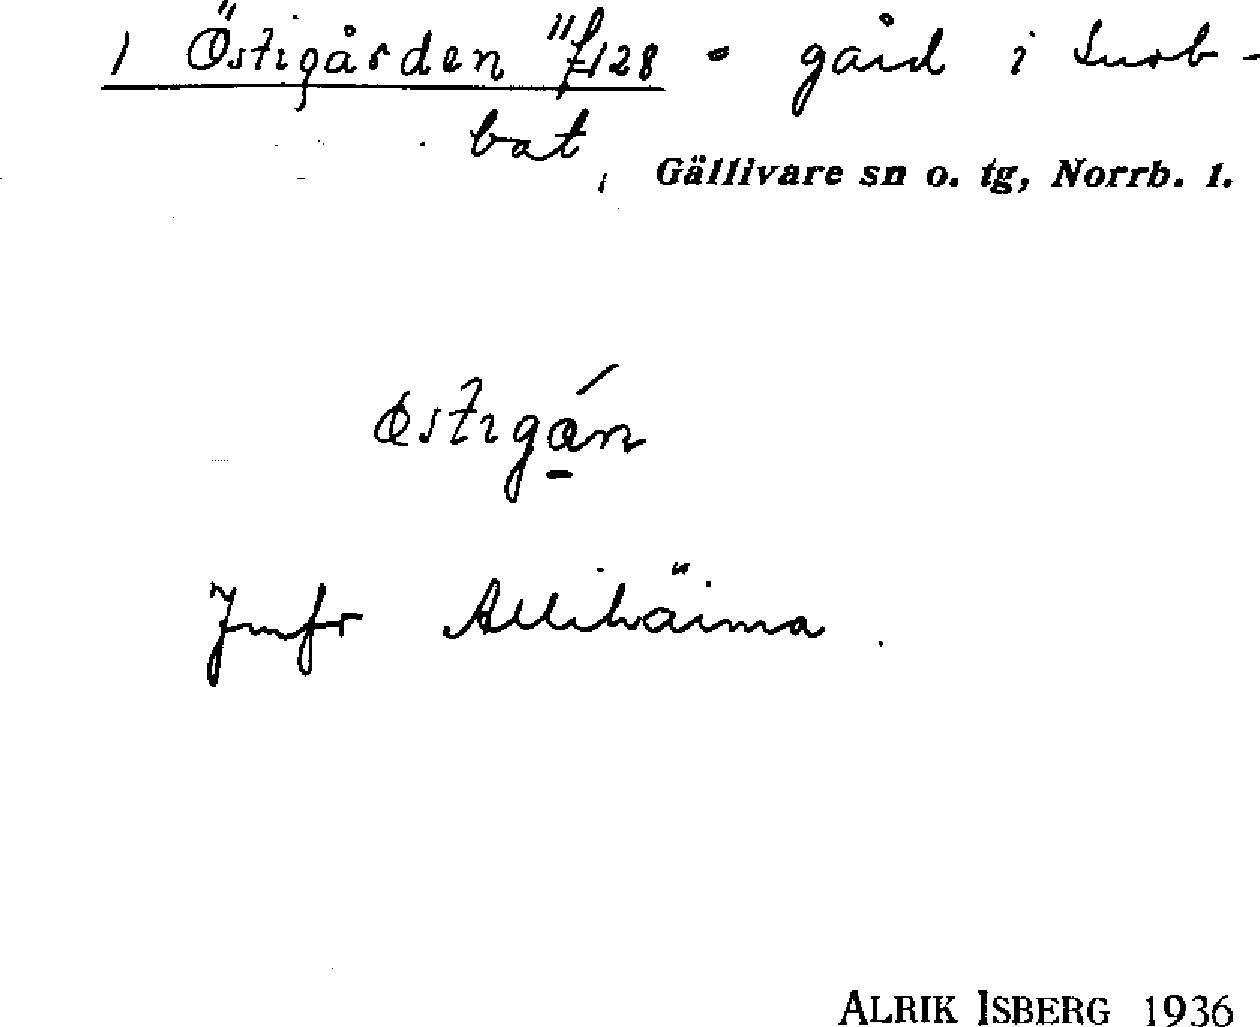 1 Östigården 11/128 • gård i Surb-
bat, Gällivare sn o. tg, Norrb. l.
østigán
Jmfr Allihäima.
ALRIK ISBERG 1936